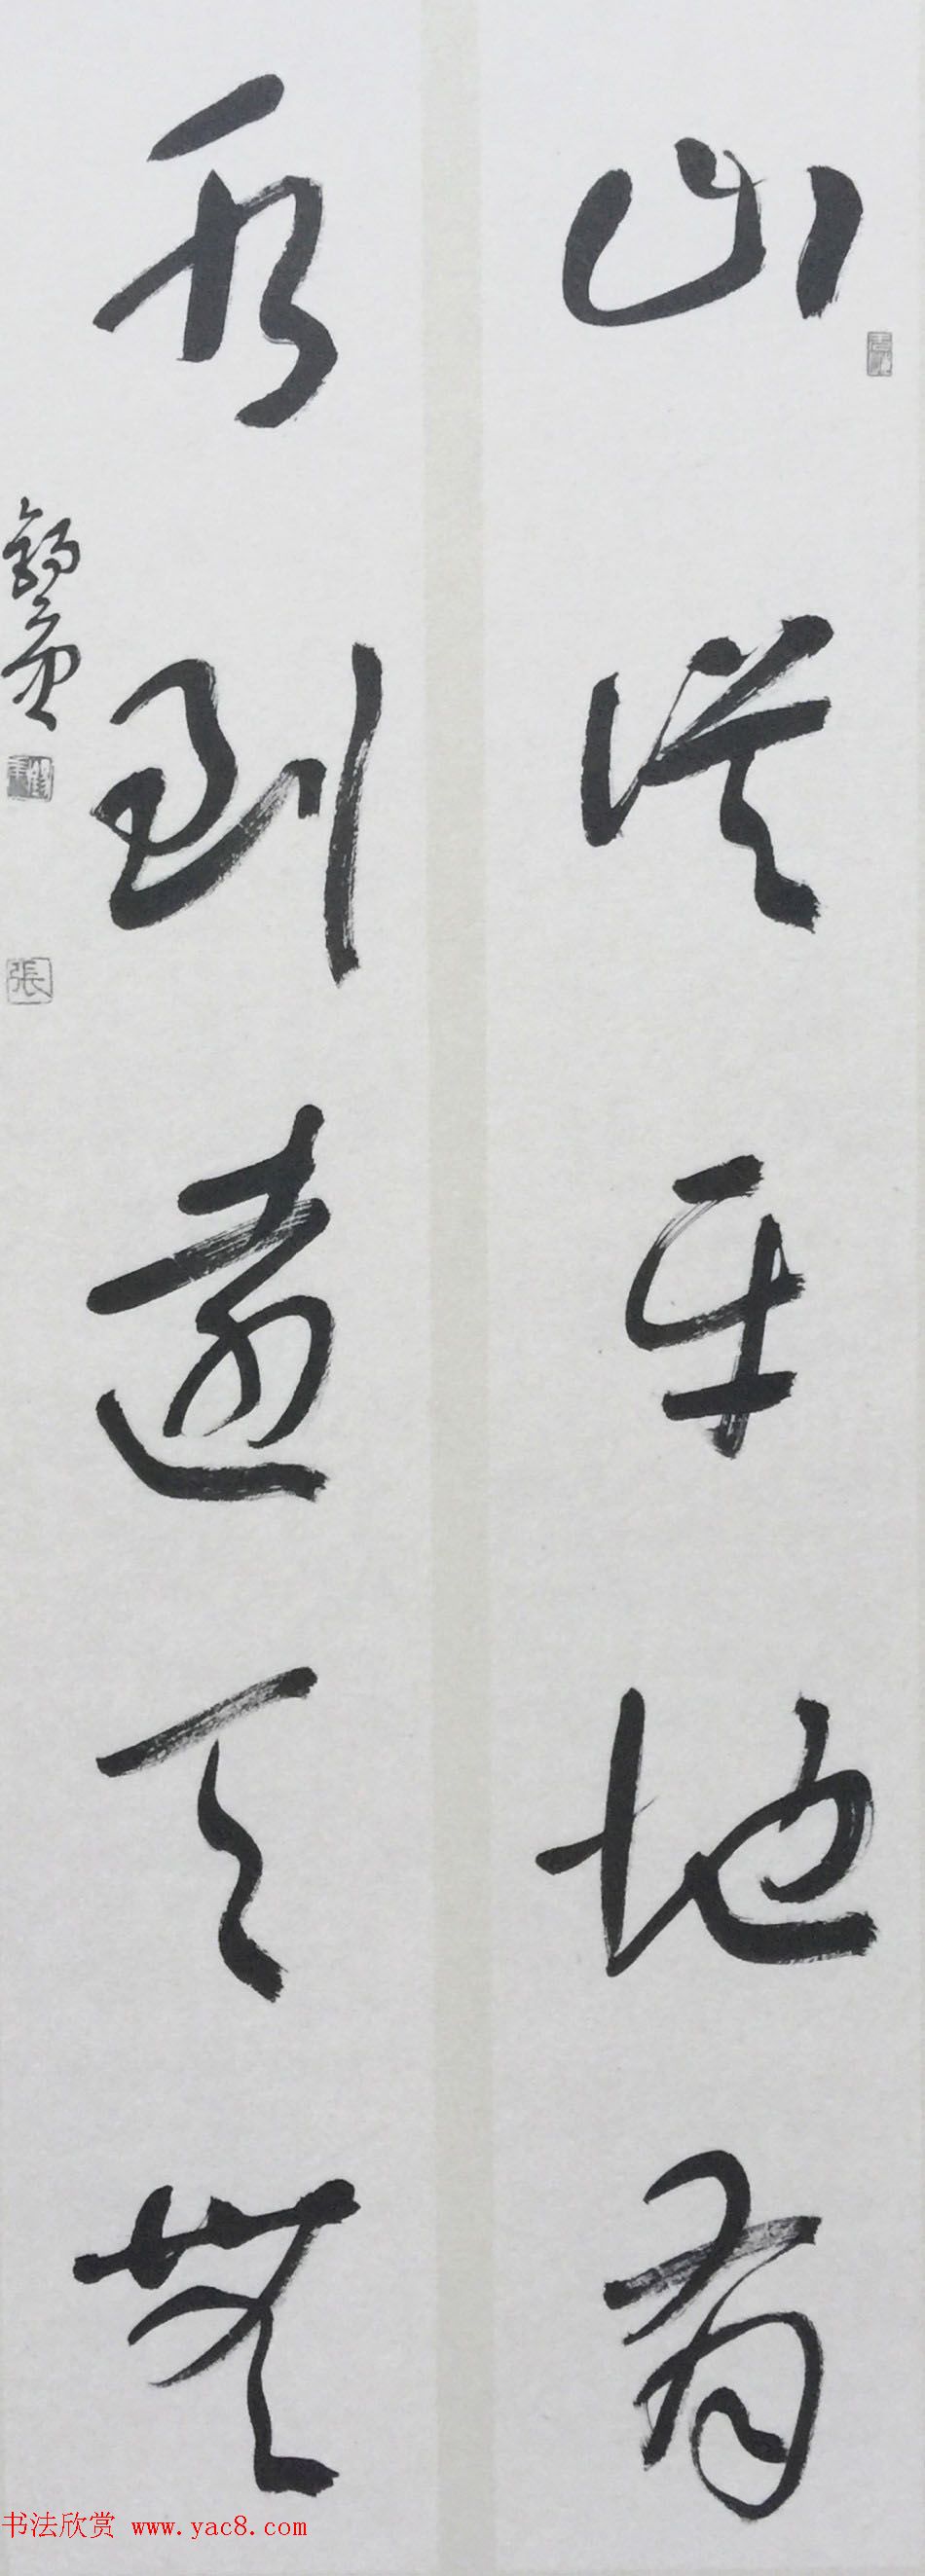 山從平地有
水到遠天無
錫庚
張
书法欣赏 www.yac8.com